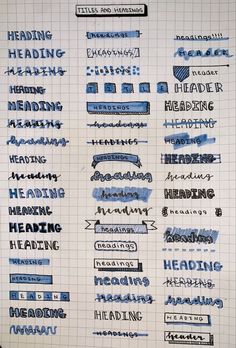 TITLES AND HEADINGS
HEADING
HEADING
HEADING
HEADING
HEADING
HEADING
heading
HEADING
heading
HEADING
HEADING
HEADING
HEADING
HEADING
HEADING
HEADING
HEADING
headings
HEADINGS
TITLE
HEADINGS
heading
HEADINGS
HEADINGS
heading
heading
heading
headings
headings
headings
headings
heading
HEADING
HEADINGS
headings!!!!
HEADER
header
HEADER
HEADING
HEADING
HEADING
HEADING
heading
HEADING
headings
HEADING
heading
HEADING
HEADING
heading
HEADING
header